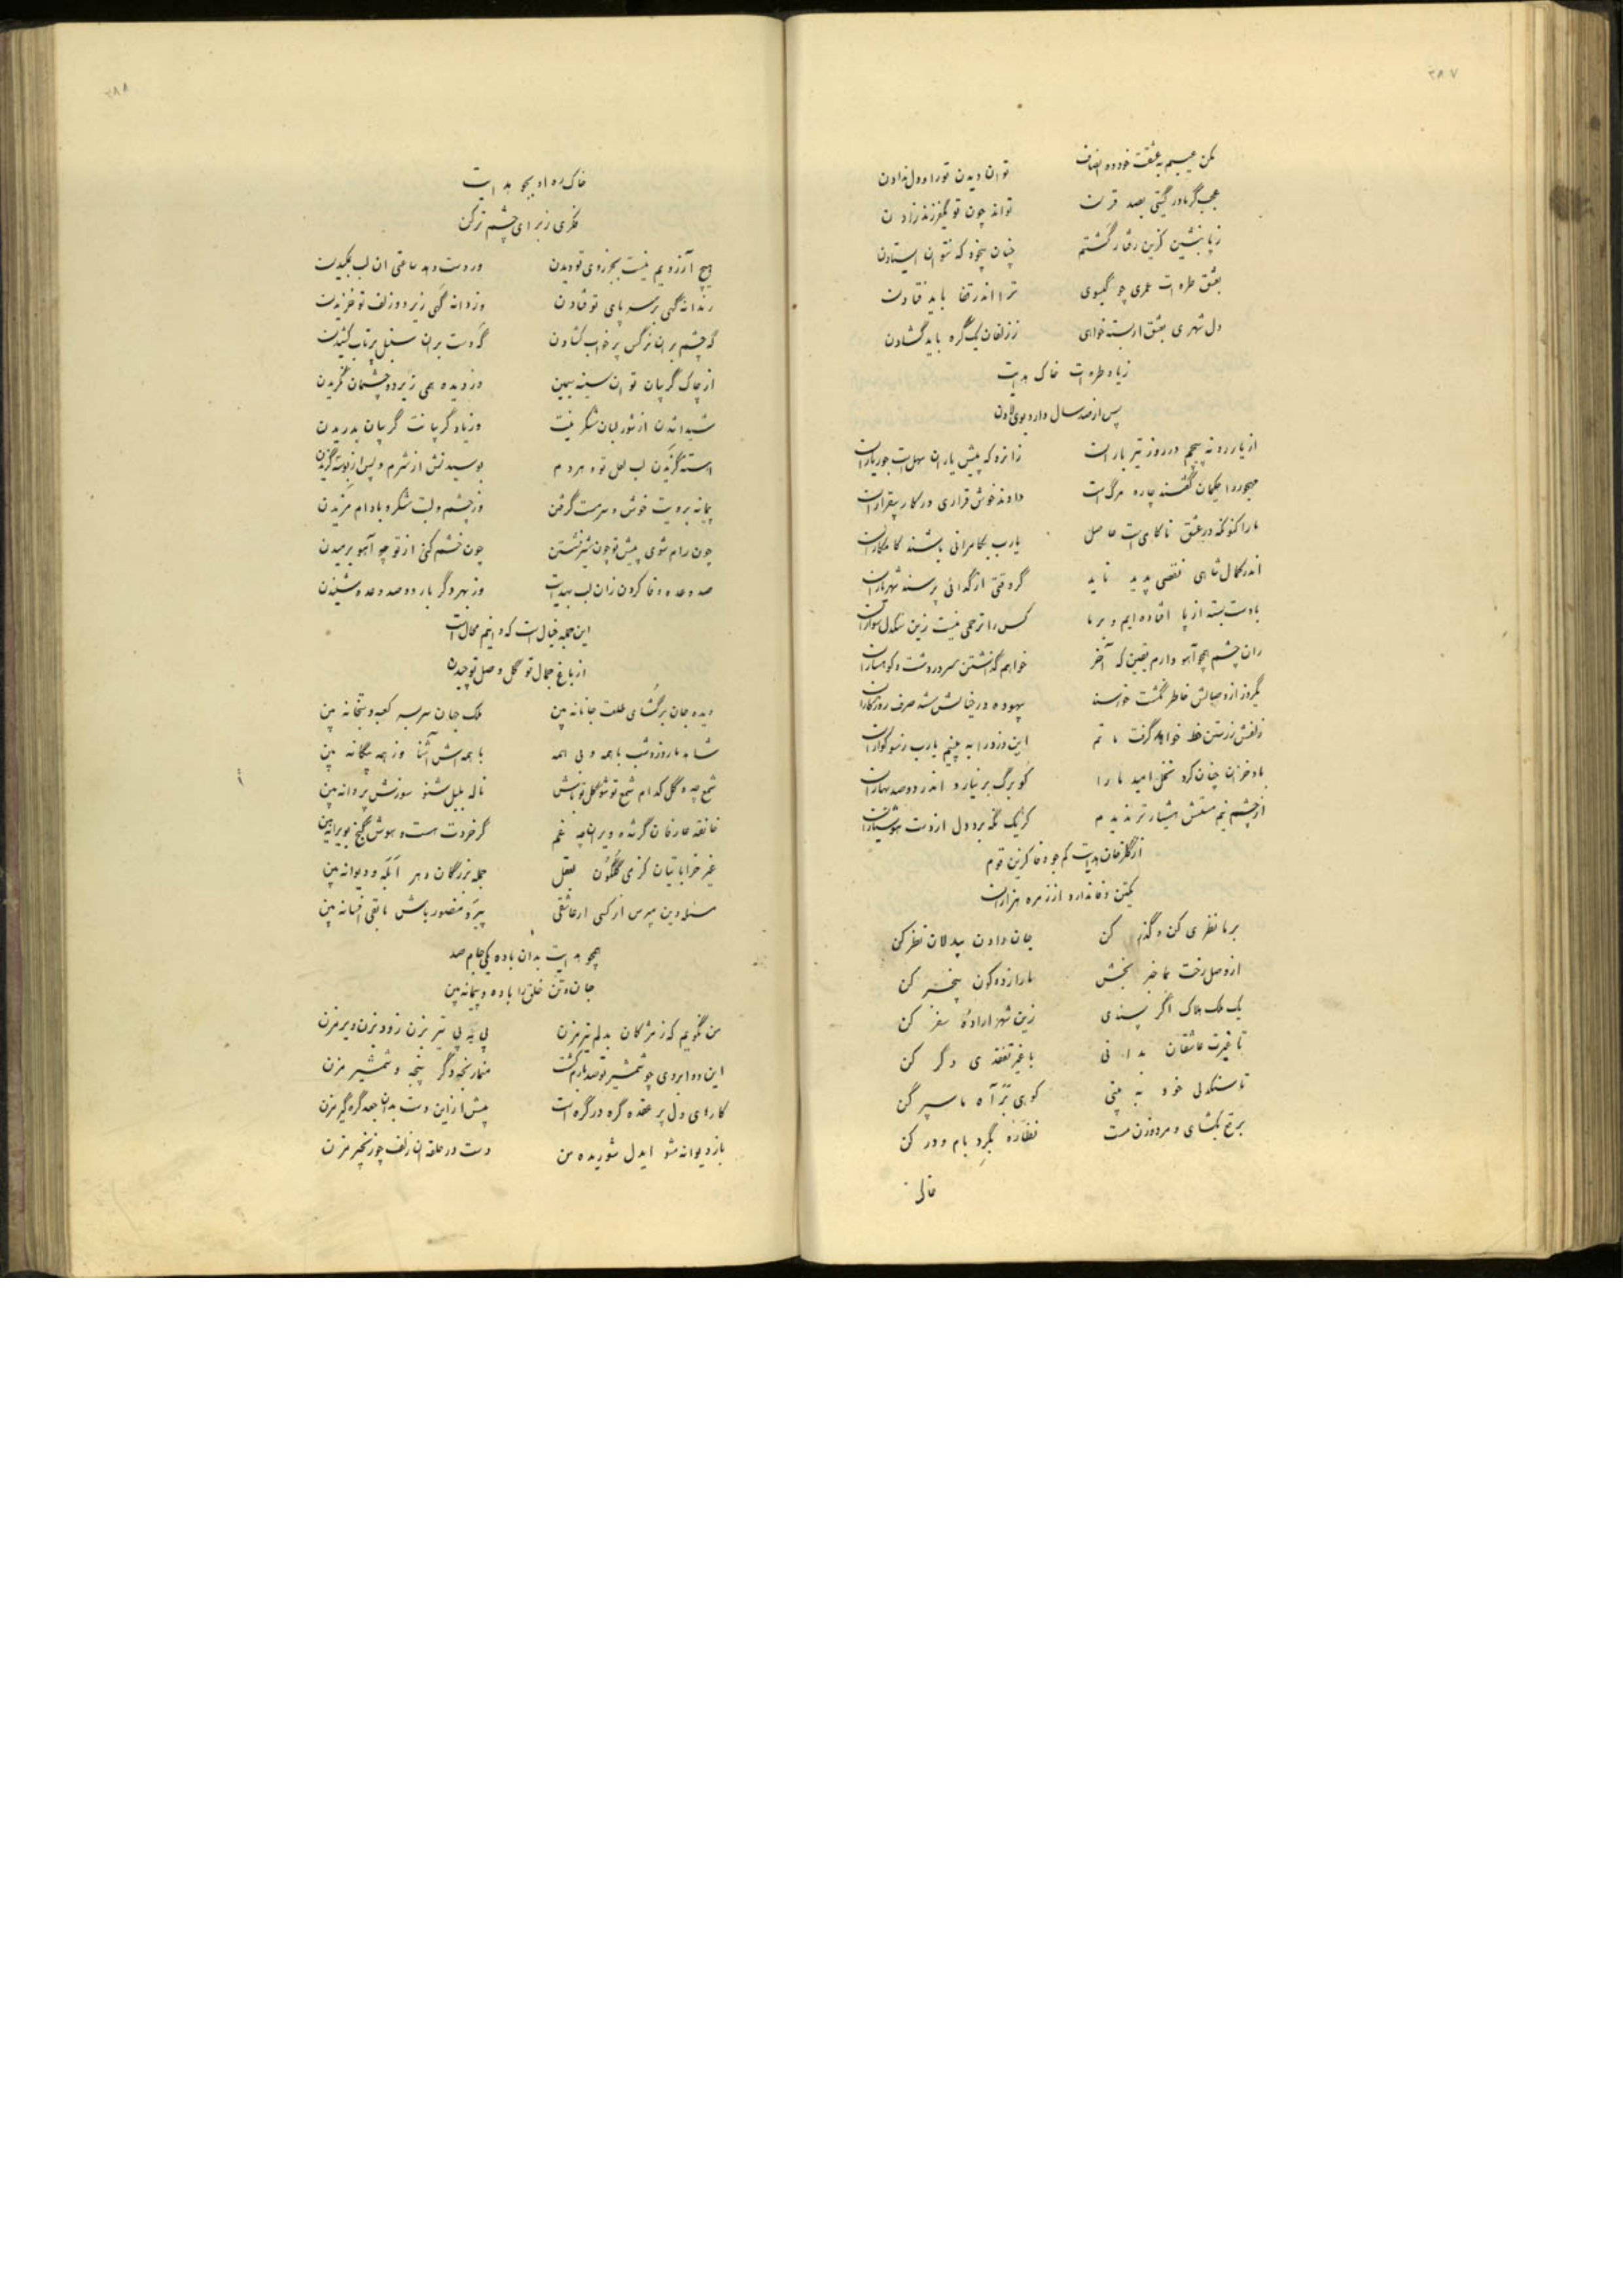 ۲۸۷
مکن عیبم به عشقت خود ده انصاف توان دیدن تو را و دل ندادن
عجب گر مادر گیتی بصد قرن تواند چون تو یکفرزند زادن
ز پا بنشین کزین رفتار گشتم چنان بیخود که نتوان ایستادن
بعشق طره ات عمری چو گیسوی ترا اندر قفا باید فتادن
دل شهری بعشق ار بسته خواهی ز زلفان یک گره باید گشادن
ز یاد طره ات خاک هدایت
پس از صد سال دارد بوی لادن
از یار رو نه پیچم در روز تیر باران زانرو که پیش یاران سهل است جور یاران
مهجور را حکیمان گفتند چاره مرگ است دادند خوش قراری در کار بیقراران
ما را کنونکه در عشق ناکامی است حاصل یارب بکامرانی باشند کامکاران
اندر کمال شاهی نقصی پدید ناید گر وقتی از گدائی پرسند شهریاران
با دست بسته از پا افتاده ایم و بر ما کس را ترحمی نیست زین سنگدل سواران
زان چشم همچو آهو دارم یقین که آخر خواهم گذاشتن سر در دشت و کوهساران
یکروز از وصالش خاطر نگشت خورسند بیهوده در خیالش شد صرف روزگاران
زلفش ز رستن خط خواهد گرفت ماتم این روز را نه بینم یارب ز سوگواران
باد خزان چنان کرد نخل امید ما را کو برگ بر نیارد اندر دو صد بهاران
از چشم نیم مستش هشیارتر ندیدم کز یک نگه برد دل از دست هوشیاران
از گلرخان هدایت کم جو وفا کزین قوم
یکتن وفا ندارد از زمره هزاران
بر ما نظری کن و گذر کن جان دادن بیدلان نظر کن
از وصل رخت بما خبر بخش ما را ز دو کون بیخبر کن
یک ملک هلاک اگر پسندی زین شهر اراده سفر کن
تا غیرت عاشقان بدانی با غیر تفقدی دگر کن
تا سنگدلی خود به بینی کوهی بر آه ما سپر کن
برقع بگشای و مرد و زن مست نظاره بگرد بام و در کن
خاک
۲۸۸
خاک ره او بجو هدایت
فکری ز برای چشم تر کن
هیچ آرزویم نیست بجز روی تو دیدن ور دست دهد ساعتی آن لب بمکیدن
رندانه گهی بر سر پای تو فتادن دزدانه گهی زیر دو زلف تو خزیدن
گه چشم بر آن نرگس پر خواب گشادن گه دست بر آن سنبل پر تاب کشیدن
از چاک گریبان تو آن سینه سیمین دزدیده همی زیر دو چشمان نگریدن
شیدا شدن از شور لبان شکرینت وز یاد گریبانت گریبان بدریدن
آهسته گزیدن لب لعل تو و هر دم بوسیدنش از شرم و پس از بوسه گزیدن
پیمانه برویت خوش و سرمست گرفتن وز چشم و لبت شکر و بادام مزیدن
چون رام شوی پیش تو چون شیر نشستن چون خشم کنی از تو چو آهو برمیدن
صد وعده وفا کردن زان لب بهدایت وز بهر دگر بار دو صد وعده شنیدن
این جمله خیال است که دانیم محال است
از باغ جمال تو گل وصل تو چیدن
دیده جان برگشای طلعت جانانه بین ملک جهان سر بسر کعبه و بتخانه بین
شاهد ما روز و شب با همه و بی همه با همه اش آشنا وز همه بیگانه بین
شمع چه و گل کدام شمع تو شو گل تو باش ناله بلبل شنو سوزش پروانه بین
خانقه عارفان گر شده ویران چه غم گر خردت هست و هوش گنج بویرانه بین
غیر خراباتیان کز می گلگون بعقل جمله بزرگان دهر ابله و دیوانه بین
مسئله دین مپرس از کسی ار عاشقی پیرو منصور باش مابقی افسانه بین
همچو هدایت بدان باده یکی جام صد
جان و تن خلق را باده و پیمانه بین
من نگویم که ز مژگان بدلم تیر مزن پی به پی تیر بزن زود بزن دیر مزن
این دو ابروی چو شمشیر تو صد بارم کشت منما رنجه دگر پنجه و شمشیر مزن
کار ای دل پر عقده گره در گره است بیش ازین دست بدان جعد گره گیر مزن
باز دیوانه مشو ایدل شوریده من دست در حلقه آن زلف چو زنجیر مزن